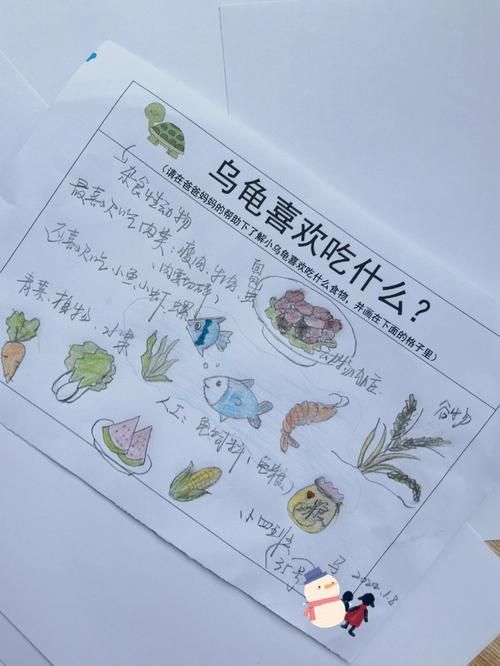 乌龟喜欢吃什么？
（请在爸爸妈妈的帮助下了解小乌龟喜欢吃什么食物，并画在下面的格子里）
杂食性动物
最喜欢吃肉类：瘦肉、猪肉、
（肉要切碎）
还喜欢吃小鱼、小虾、螺
青菜、植物、水果
谷物
人工：龟饲料（龟粮）
粮
小四班
（35号）
2022.1.8